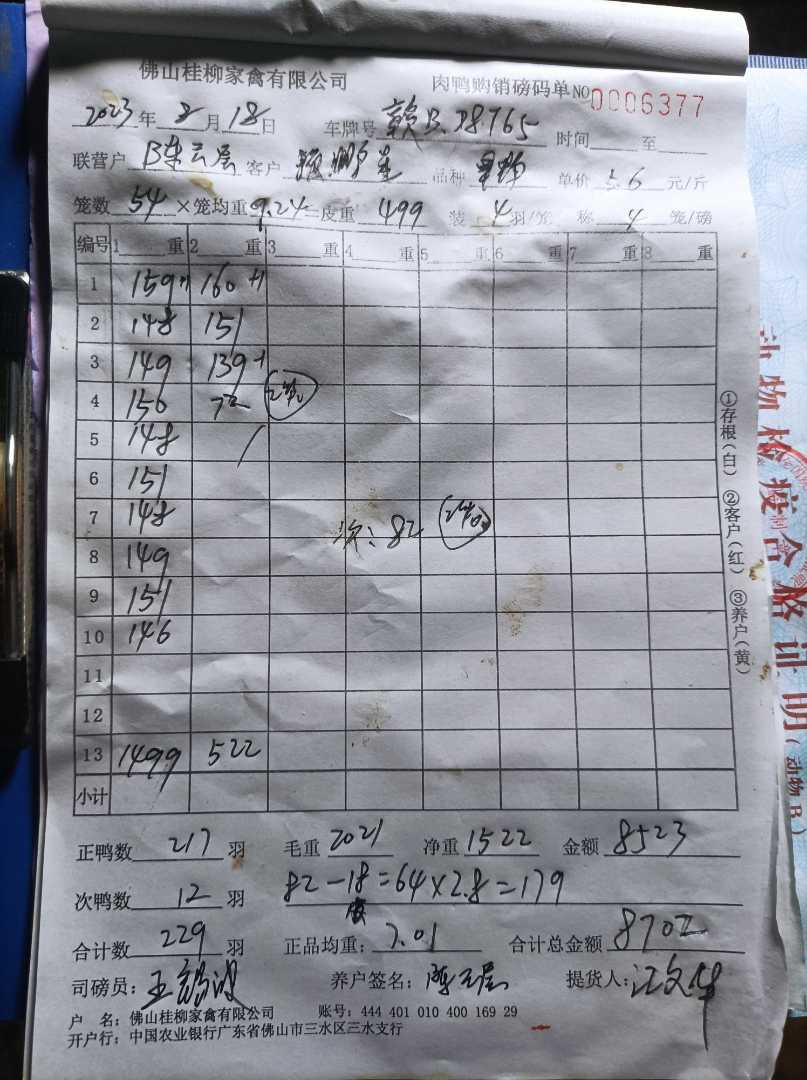 佛山桂柳家禽有限公司 肉鸭购销磅码单 NO 0006377
2023年2月18日 车牌号 赣B.D8765 时间 至
联营户 陈云层 客户 品种 单价 5.6 元/斤
笼数 54 ×笼均重 9.24 =皮重 499 装 4 羽/笼 称 4 笼/磅
编号 1 重 2 重 3 重 4 重 5 重 6 重 7 重 8 重
1 159+1 160+1
2 148 151
3 149 139+1
4 150 72 2笼
5 148 /
6 151
7 148 次:82 2笼
8 149
9 151
10 146
11
12
13 1499 522
小计
①存根(白) ②客户(红) ③养户(黄)
正鸭数 217 羽 毛重 2021 净重 1522 金额 8523
次鸭数 12 羽 82-18=64×2.8=179
皮
合计数 229 羽 正品均重: 7.01 合计总金额 8702
司磅员: 养户签名: 陈云层 提货人: 江文华
户 名: 佛山桂柳家禽有限公司 账号: 444 401 010 400 169 29
开户行: 中国农业银行广东省佛山市三水区三水支行
动物检疫合格证明(动物B)